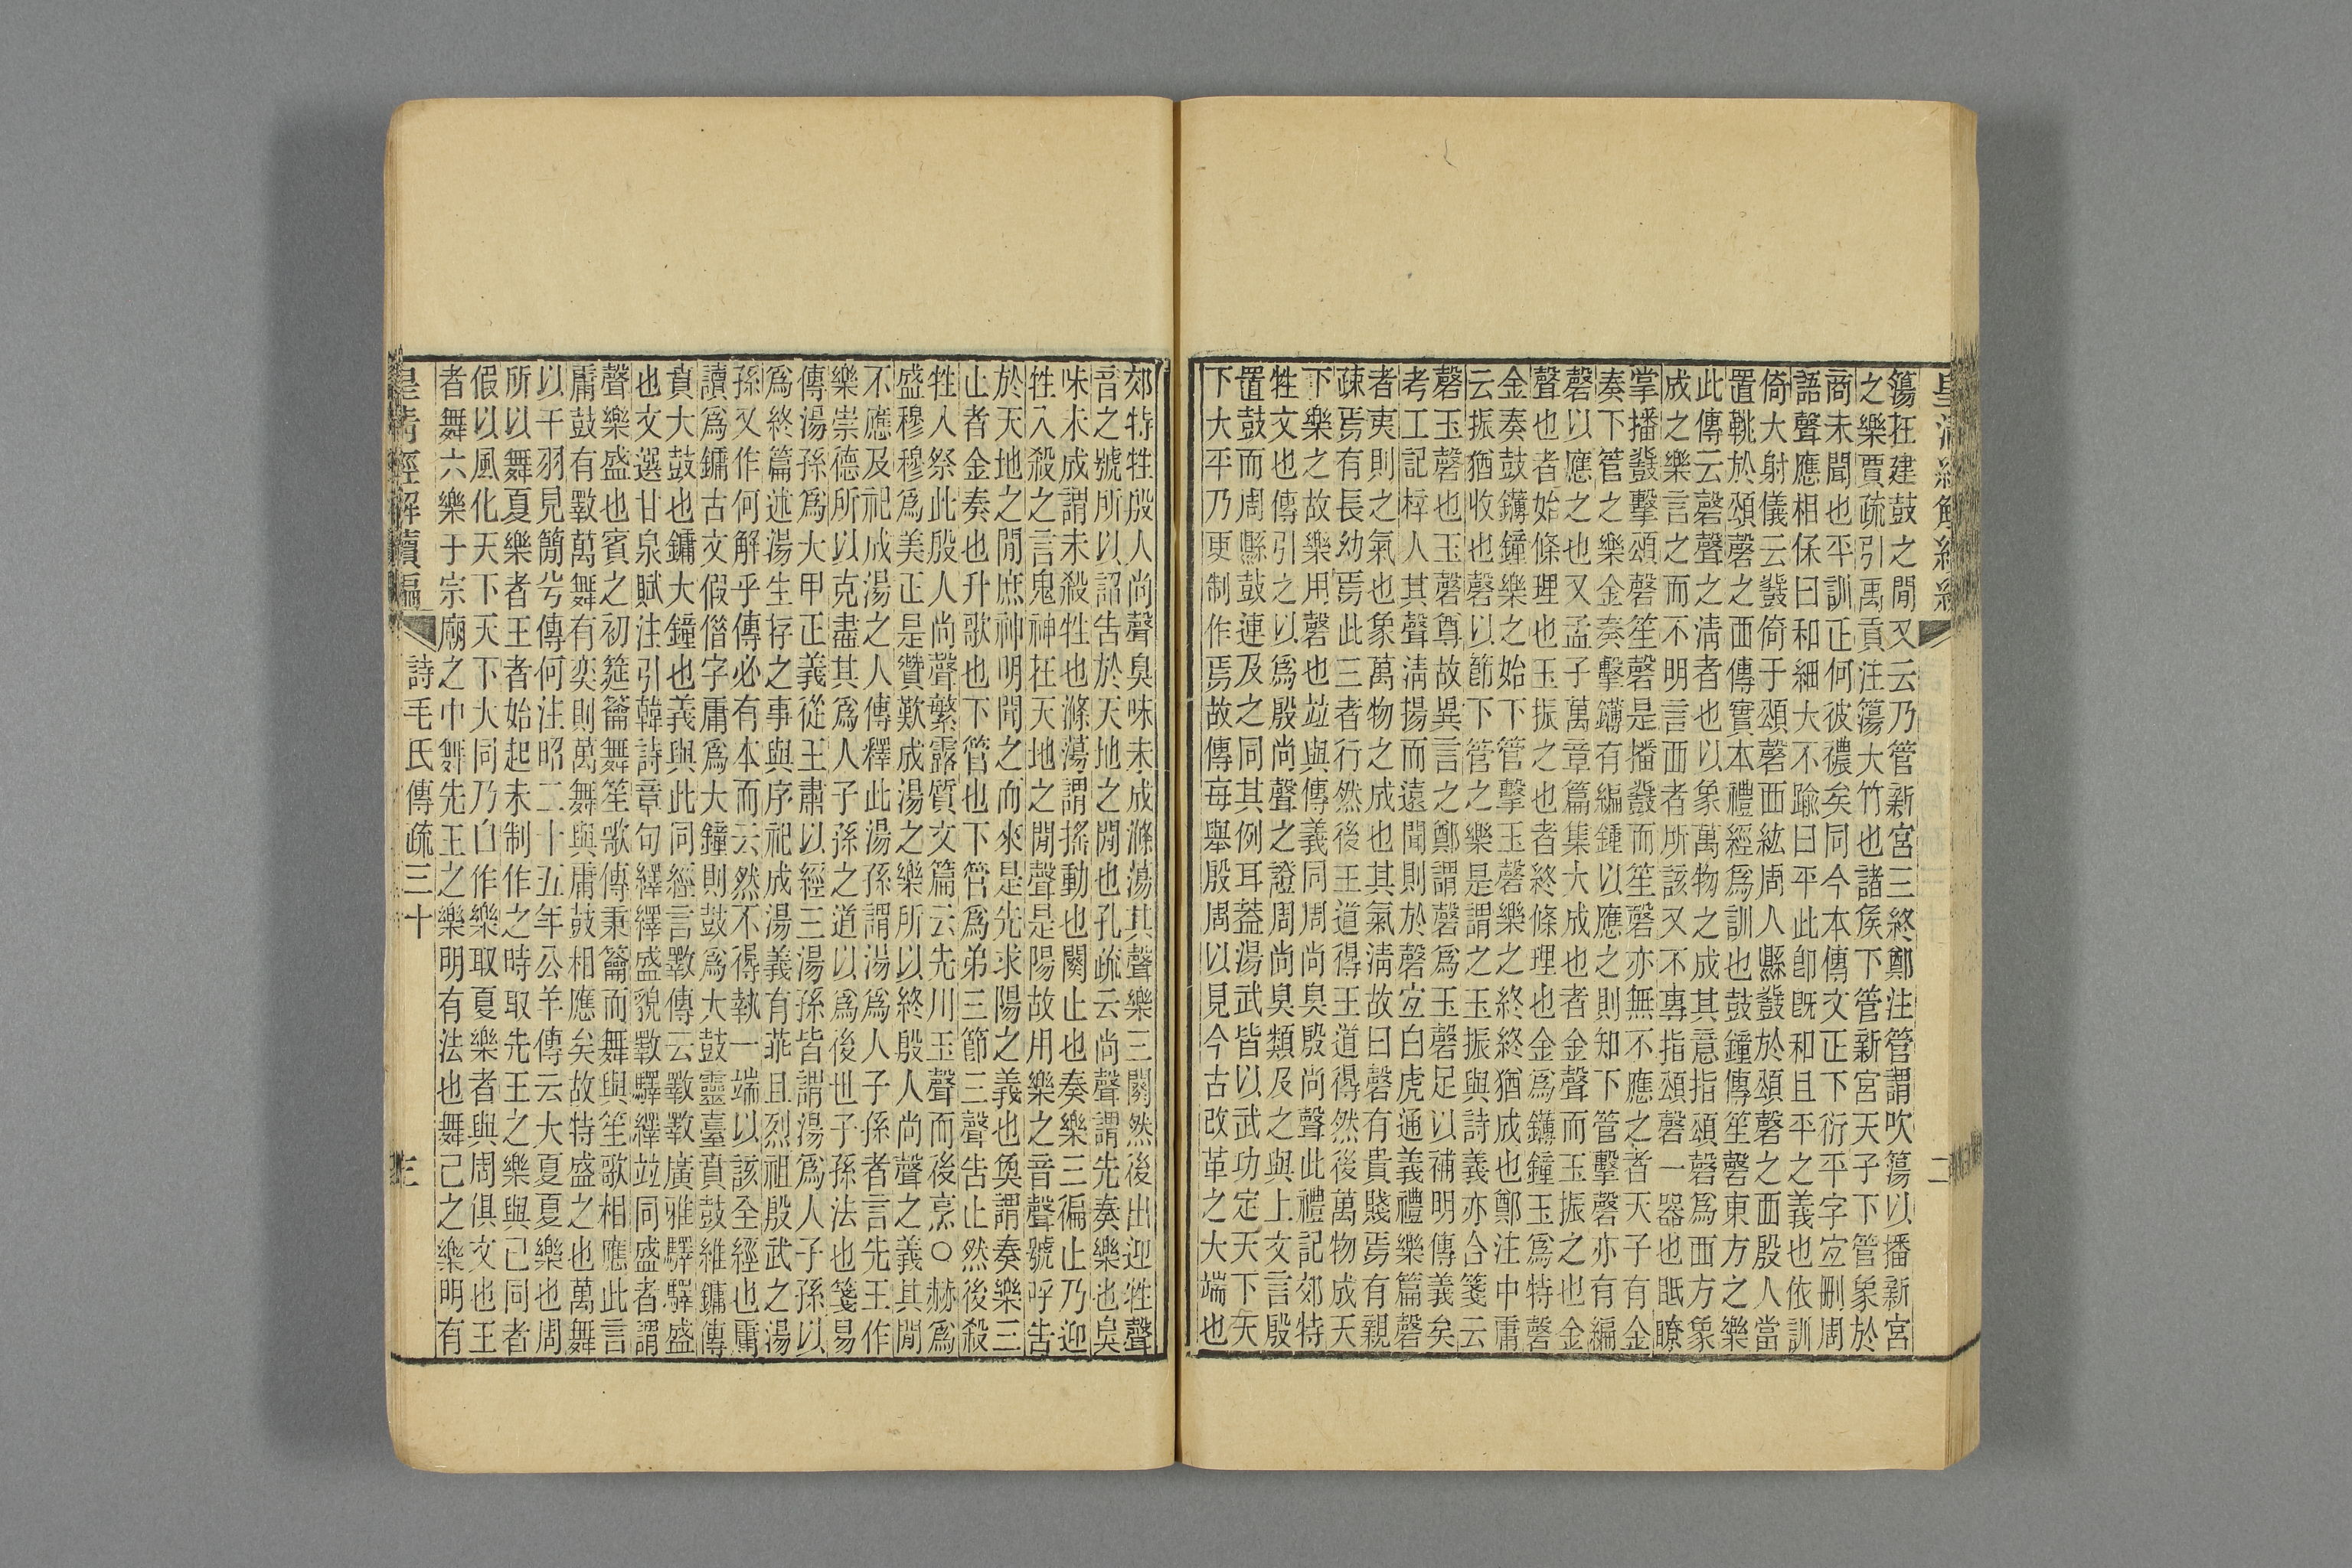 簜在建鼓之閒又云乃管新宮三終鄭注管謂吹簜以播新宮
之樂賈疏引禹貢注簜大竹也諸矦下管新宮天子下管象於
商未聞也平訓正何彼襛矣同今本傳文正下衍平字宐刪周
語聲應相保曰和細大不踰曰平此卽旣和且平之義也依訓
倚大射儀云鼗倚于頌磬西紘周人縣鼗於頌磬之西殷人當
置鞉於頌磬之西傳實本禮經爲訓也鼓鐘傳笙磬東方之樂
此傳云磬聲之淸者也以象萬物之成其意指頌磬爲西方象
成之樂言之而不明言西者所該又不專指頌磬一器也眡瞭
掌播鼗擊頌磬笙磬是播鼗而笙磬亦無不應之者天子有金
奏下管之樂金奏擊鏄有編鍾以應之則知下管擊磬亦有編
磬以應之也又孟子萬章篇集大成也者金聲而玉振之也金
聲也者始條理也玉振之也者終條理也金爲鏄鐘玉爲特磬
金奏鼓鏄鐘樂之始下管擊玉磬樂之終終猶成也鄭注中庸
云振猶收也磬以節下管之樂是謂之玉振與詩義亦合箋云
磬玉磬也玉磬尊故異言之鄭謂磬爲玉磬足以補明傳義矣
考工記梓人其聲淸揚而遠聞則於磬宐白虎通義禮樂篇磬
者夷則之氣也象萬物之成也其氣淸故曰磬有貴賤焉有親
疎焉有長幼焉此三者行然後王道得王道得然後萬物成天
下樂之故樂用磬也竝與傳義同周尚臭殷尚聲此禮記郊特
牲文也傳引之以爲殷尚聲之證周尚臭類及之與上文言殷
置鼓而周縣鼓連及之同其例耳蓋湯武皆以武功定天下天
下大平乃更制作焉故傳每舉殷周以見今古改革之大端也
郊特牲殷人尚聲臭味未成滌蕩其聲樂三闋然後出迎牲聲
音之號所以詔告於天地之閒也孔疏云尚聲謂先奏樂也臭
味未成謂未殺牲也滌蕩謂搖動也闋止也奏樂三徧止乃迎
牲入殺之言鬼神在天地之閒聲是陽故用樂之音聲號呼告
於天地之閒庶神明聞之而來是先求陽之義也奐謂奏樂三
止者金奏也升歌也下管也下管爲弟三節三聲告止然後殺
牲人祭此殷人尚聲繁露質文篇云先用玉聲而後烹○赫爲
盛穆穆爲美正是贊歎成湯之樂所以終殷人尚聲之義其閒
不應及祀成湯之人傳釋此湯孫謂湯爲人子孫者言先王作
樂崇德所以克盡其爲人子孫之道以爲後世子孫法也箋易
傳湯孫爲大甲正義從王肅以經三湯孫皆謂湯爲人子孫以
爲終篇述湯生存之事與序祀成湯義有乖且烈祖殷武之湯
孫又作何解乎傳必有本而云然不得執一端以該全經也庸
讀爲鏞古文假借字庸爲大鐘則鼓爲大鼓靈臺賁鼓維鏞傳
賁大鼓也鏞大鐘也義與此同經言斁傳云斁斁廣雅驛驛盛
也文選甘泉賦注引韓詩章句繹繹盛貌斁驛繹竝同盛者謂
聲樂盛也賓之初筵籥舞笙歌傳秉籥而舞與笙歌相應此言
庸鼓有斁萬舞有奕則萬舞與庸鼓相應矣故特盛之也萬舞
以干羽見簡兮傳何注昭二十五年公羊傳云大夏夏樂也周
所以舞夏樂者王者始起未制作之時取先王之樂與己同者
假以風化天下天下大同乃自作樂取夏樂者與周俱文也王
者舞六樂于宗廟之中舞先王之樂明有法也舞己之樂明有
皇清經解續編
詩毛氏傳疏三十
三